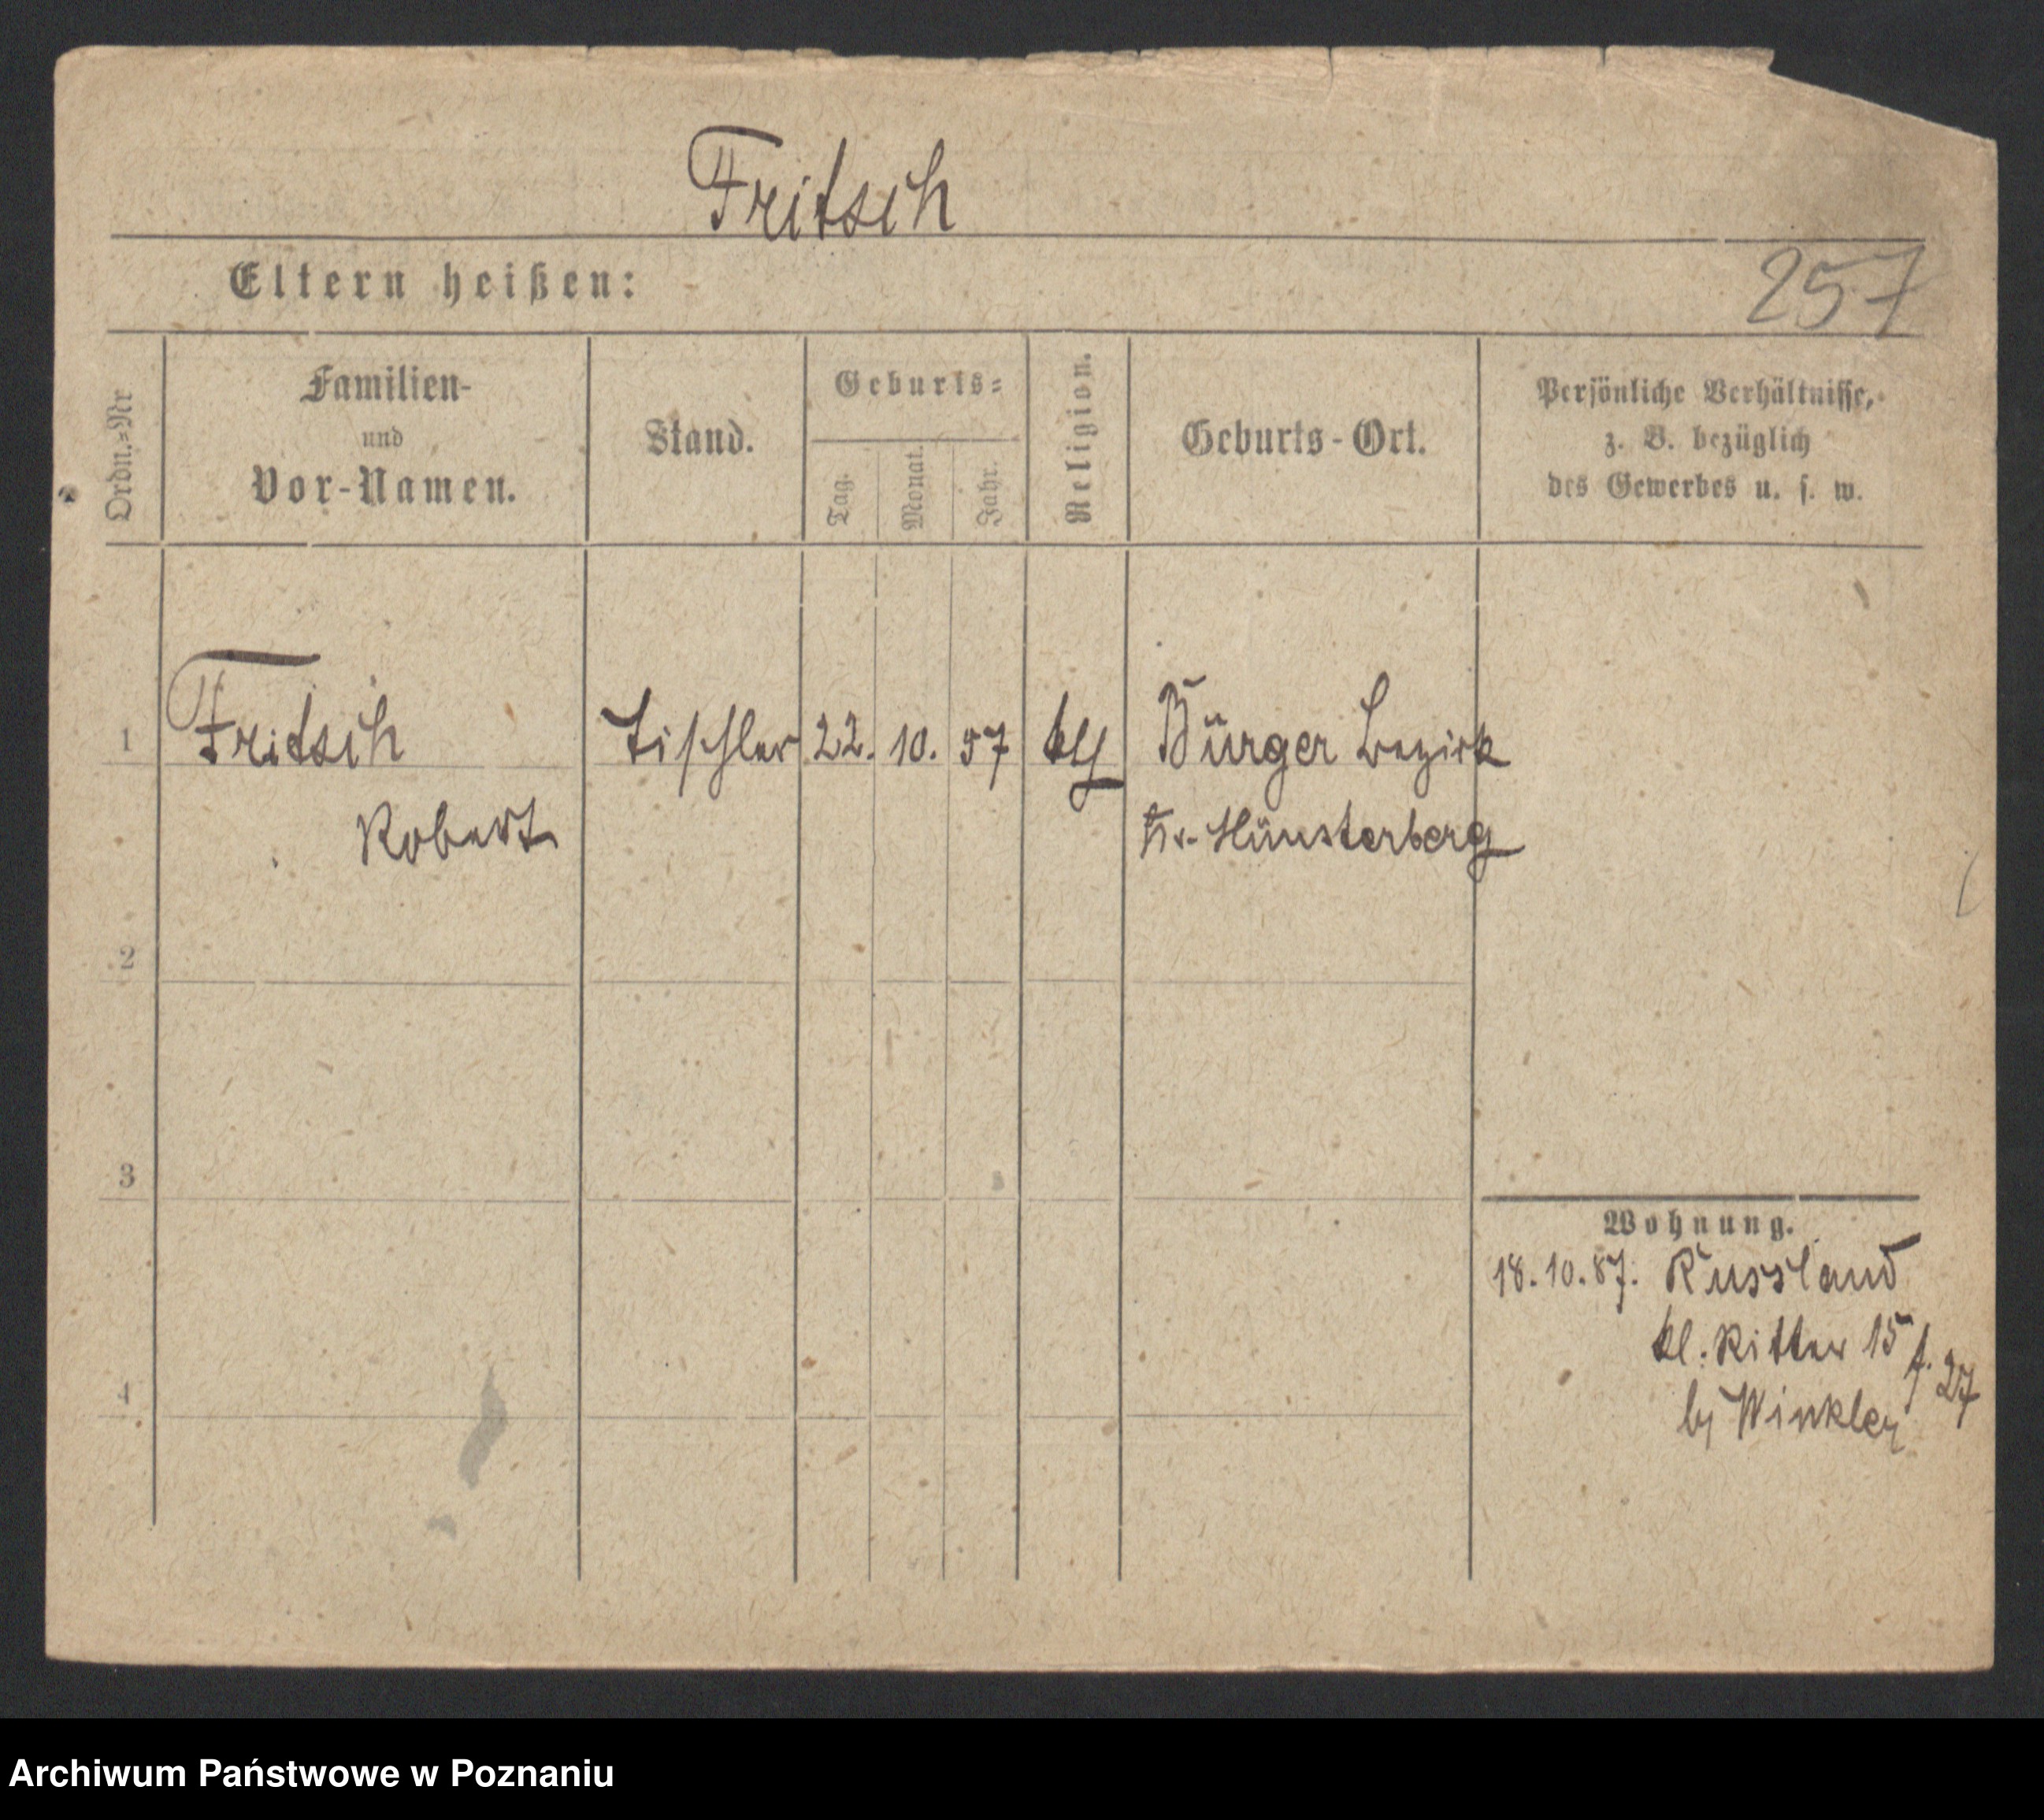 Fritsch
Eltern heißen:
257
Ordn.=Nr
Familien-
und
Vor-Namen.
Stand.
Geburts=
Tag.
Monat.
Jahr.
Religion.
Geburts-Ort.
Persönliche Verhältnisse,
z. B. bezüglich
des Gewerbes u. s. w.
1 Fritsch Tischler 22. 10. 57 Bürger Bezirk
Robert Kr. Münsterberg
2
3
Wohnung.
18.10.87. Russland
kl. Ritter 15 f. 27
by Winkler
4
Archiwum Państwowe w Poznaniu